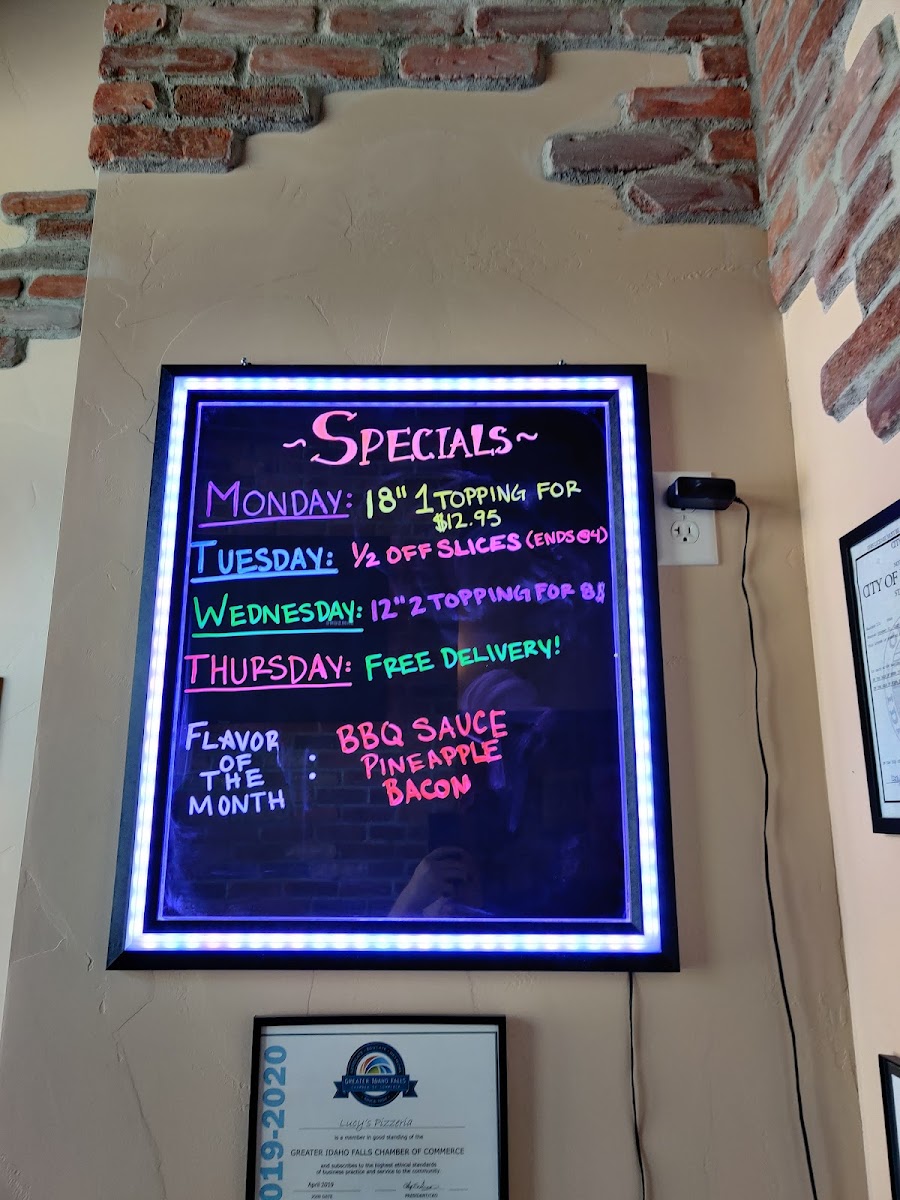 ~SPECIALS~
MONDAY: 18" 1 TOPPING FOR
$12.95
TUESDAY: 1/2 OFF SLICES (ENDS @4)
WEDNESDAY: 12" 2 TOPPING FOR 8$
THURSDAY: FREE DELIVERY!
FLAVOR
OF
THE
MONTH
:
BBQ SAUCE
PINEAPPLE
BACON
CITY OF
019-2020
GREATER IDAHO FALLS
CHAMBER OF COMMERCE
Lucy's Pizzeria
is a member in good standing of the
GREATER IDAHO FALLS CHAMBER OF COMMERCE
and subscribes to the highest ethical standards
of business practice and service to the community.
April 2019
JOIN DATE